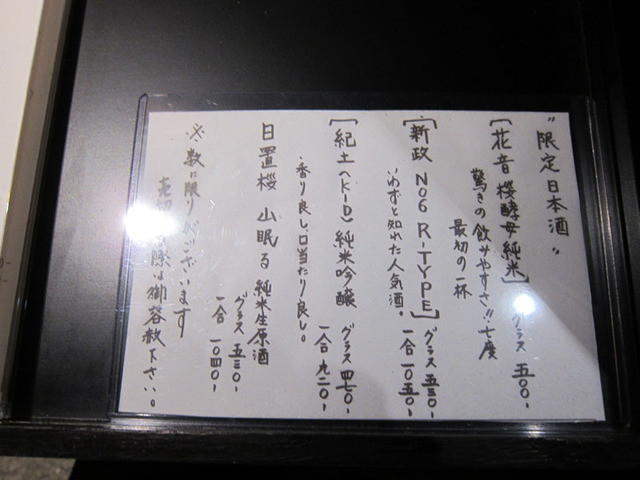 "限定日本酒"
[花音 桜酵母純米]
驚きの飲みやすさ!!七度
最初の一杯
グラス 五〇〇-
[新政 NO6 R-TYPE]
いわずと知れた人気酒。
グラス 五三〇-
一合 一〇五〇-
[紀土(KID) 純米吟醸
香り良し、口当たり良し。
グラス 四七〇-
一合 九二〇-
日置桜 山眠る 純米生原酒
グラス 五三〇-
一合 一〇四〇-
※数に限りがございます
売切の際は御容赦下さい。